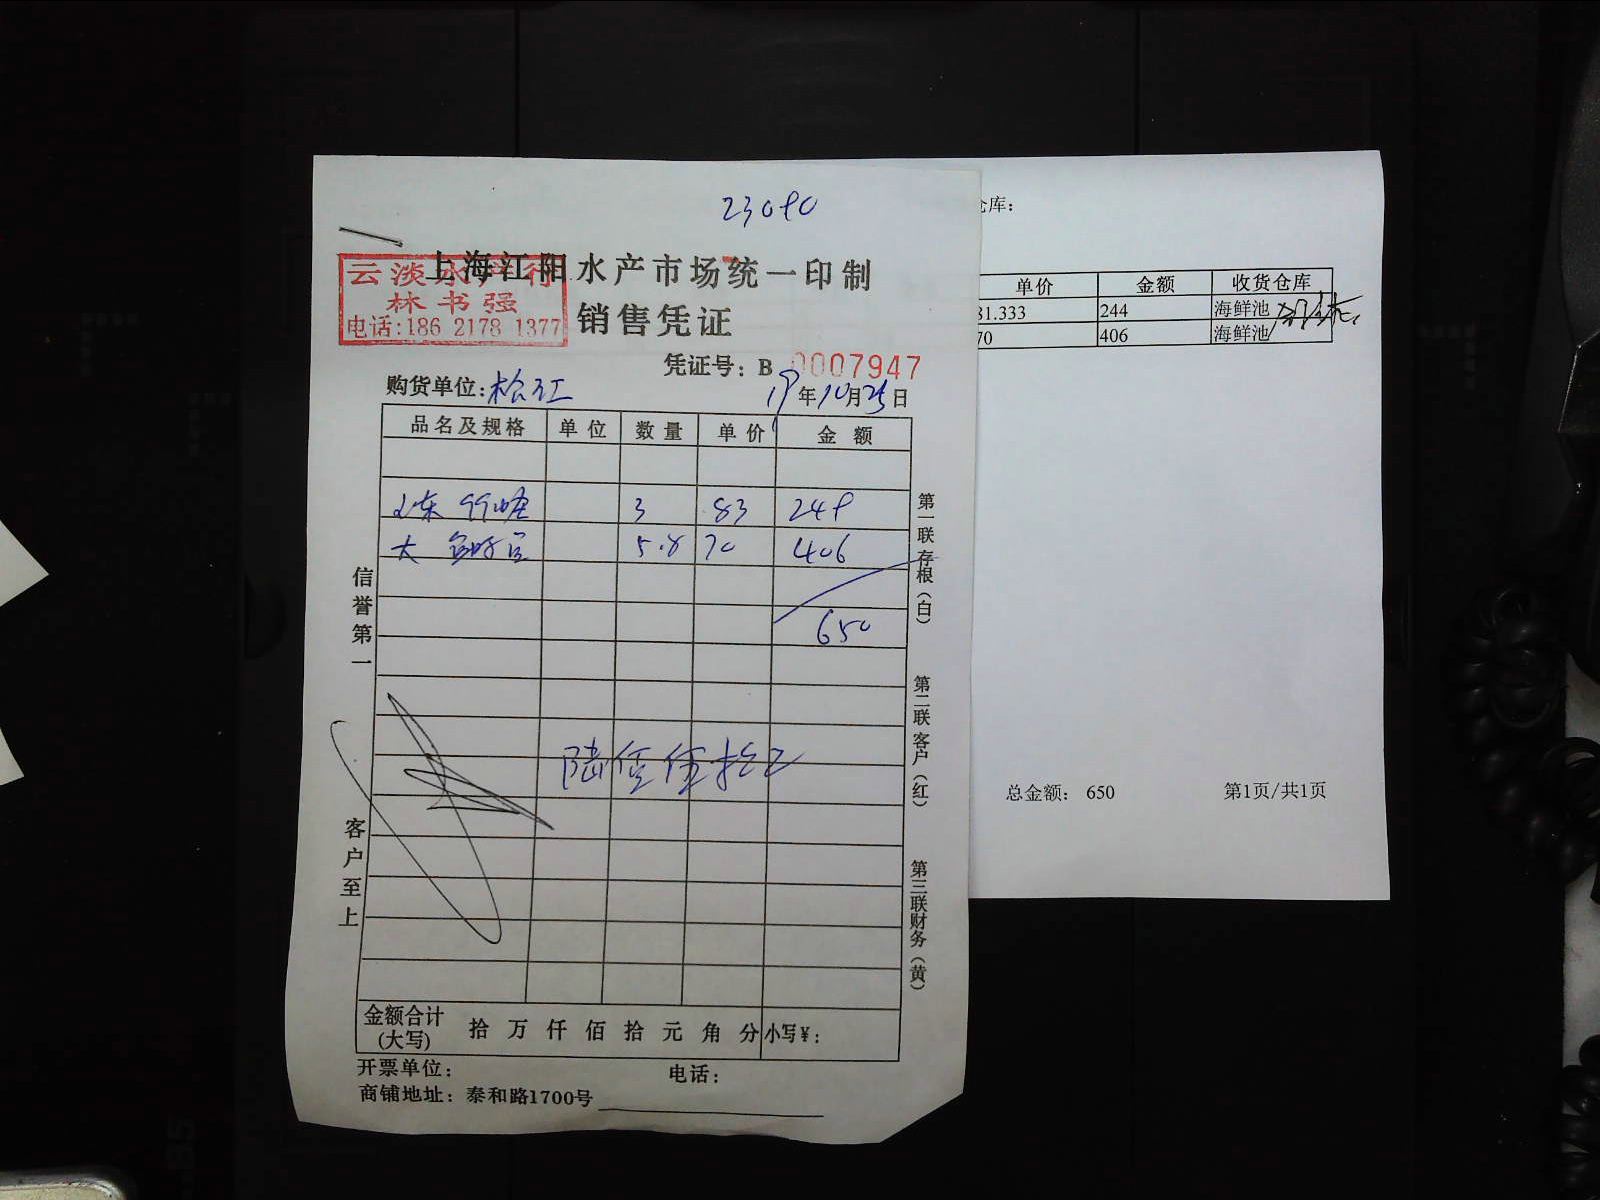 23090
上海江阳水产市场统一印制
云淡水产行
林书强
电话:186 2178 1377
销售凭证
凭证号：B 0007947
购货单位:松江
19年10月25日
品名及规格 单位 数量 单价 金额
3 83 249
大 5.8 70 406
650
陆佰伍拾元
信誉第一
客户至上
第一联存根（白）
第二联客户（红）
第三联财务（黄）
金额合计(大写) 拾万仟佰拾元角分 小写¥：
开票单位： 电话：
商铺地址：泰和路1700号
仓库：
单价 金额 收货仓库
81.333 244 海鲜池
70 406 海鲜池
总金额： 650 第1页/共1页